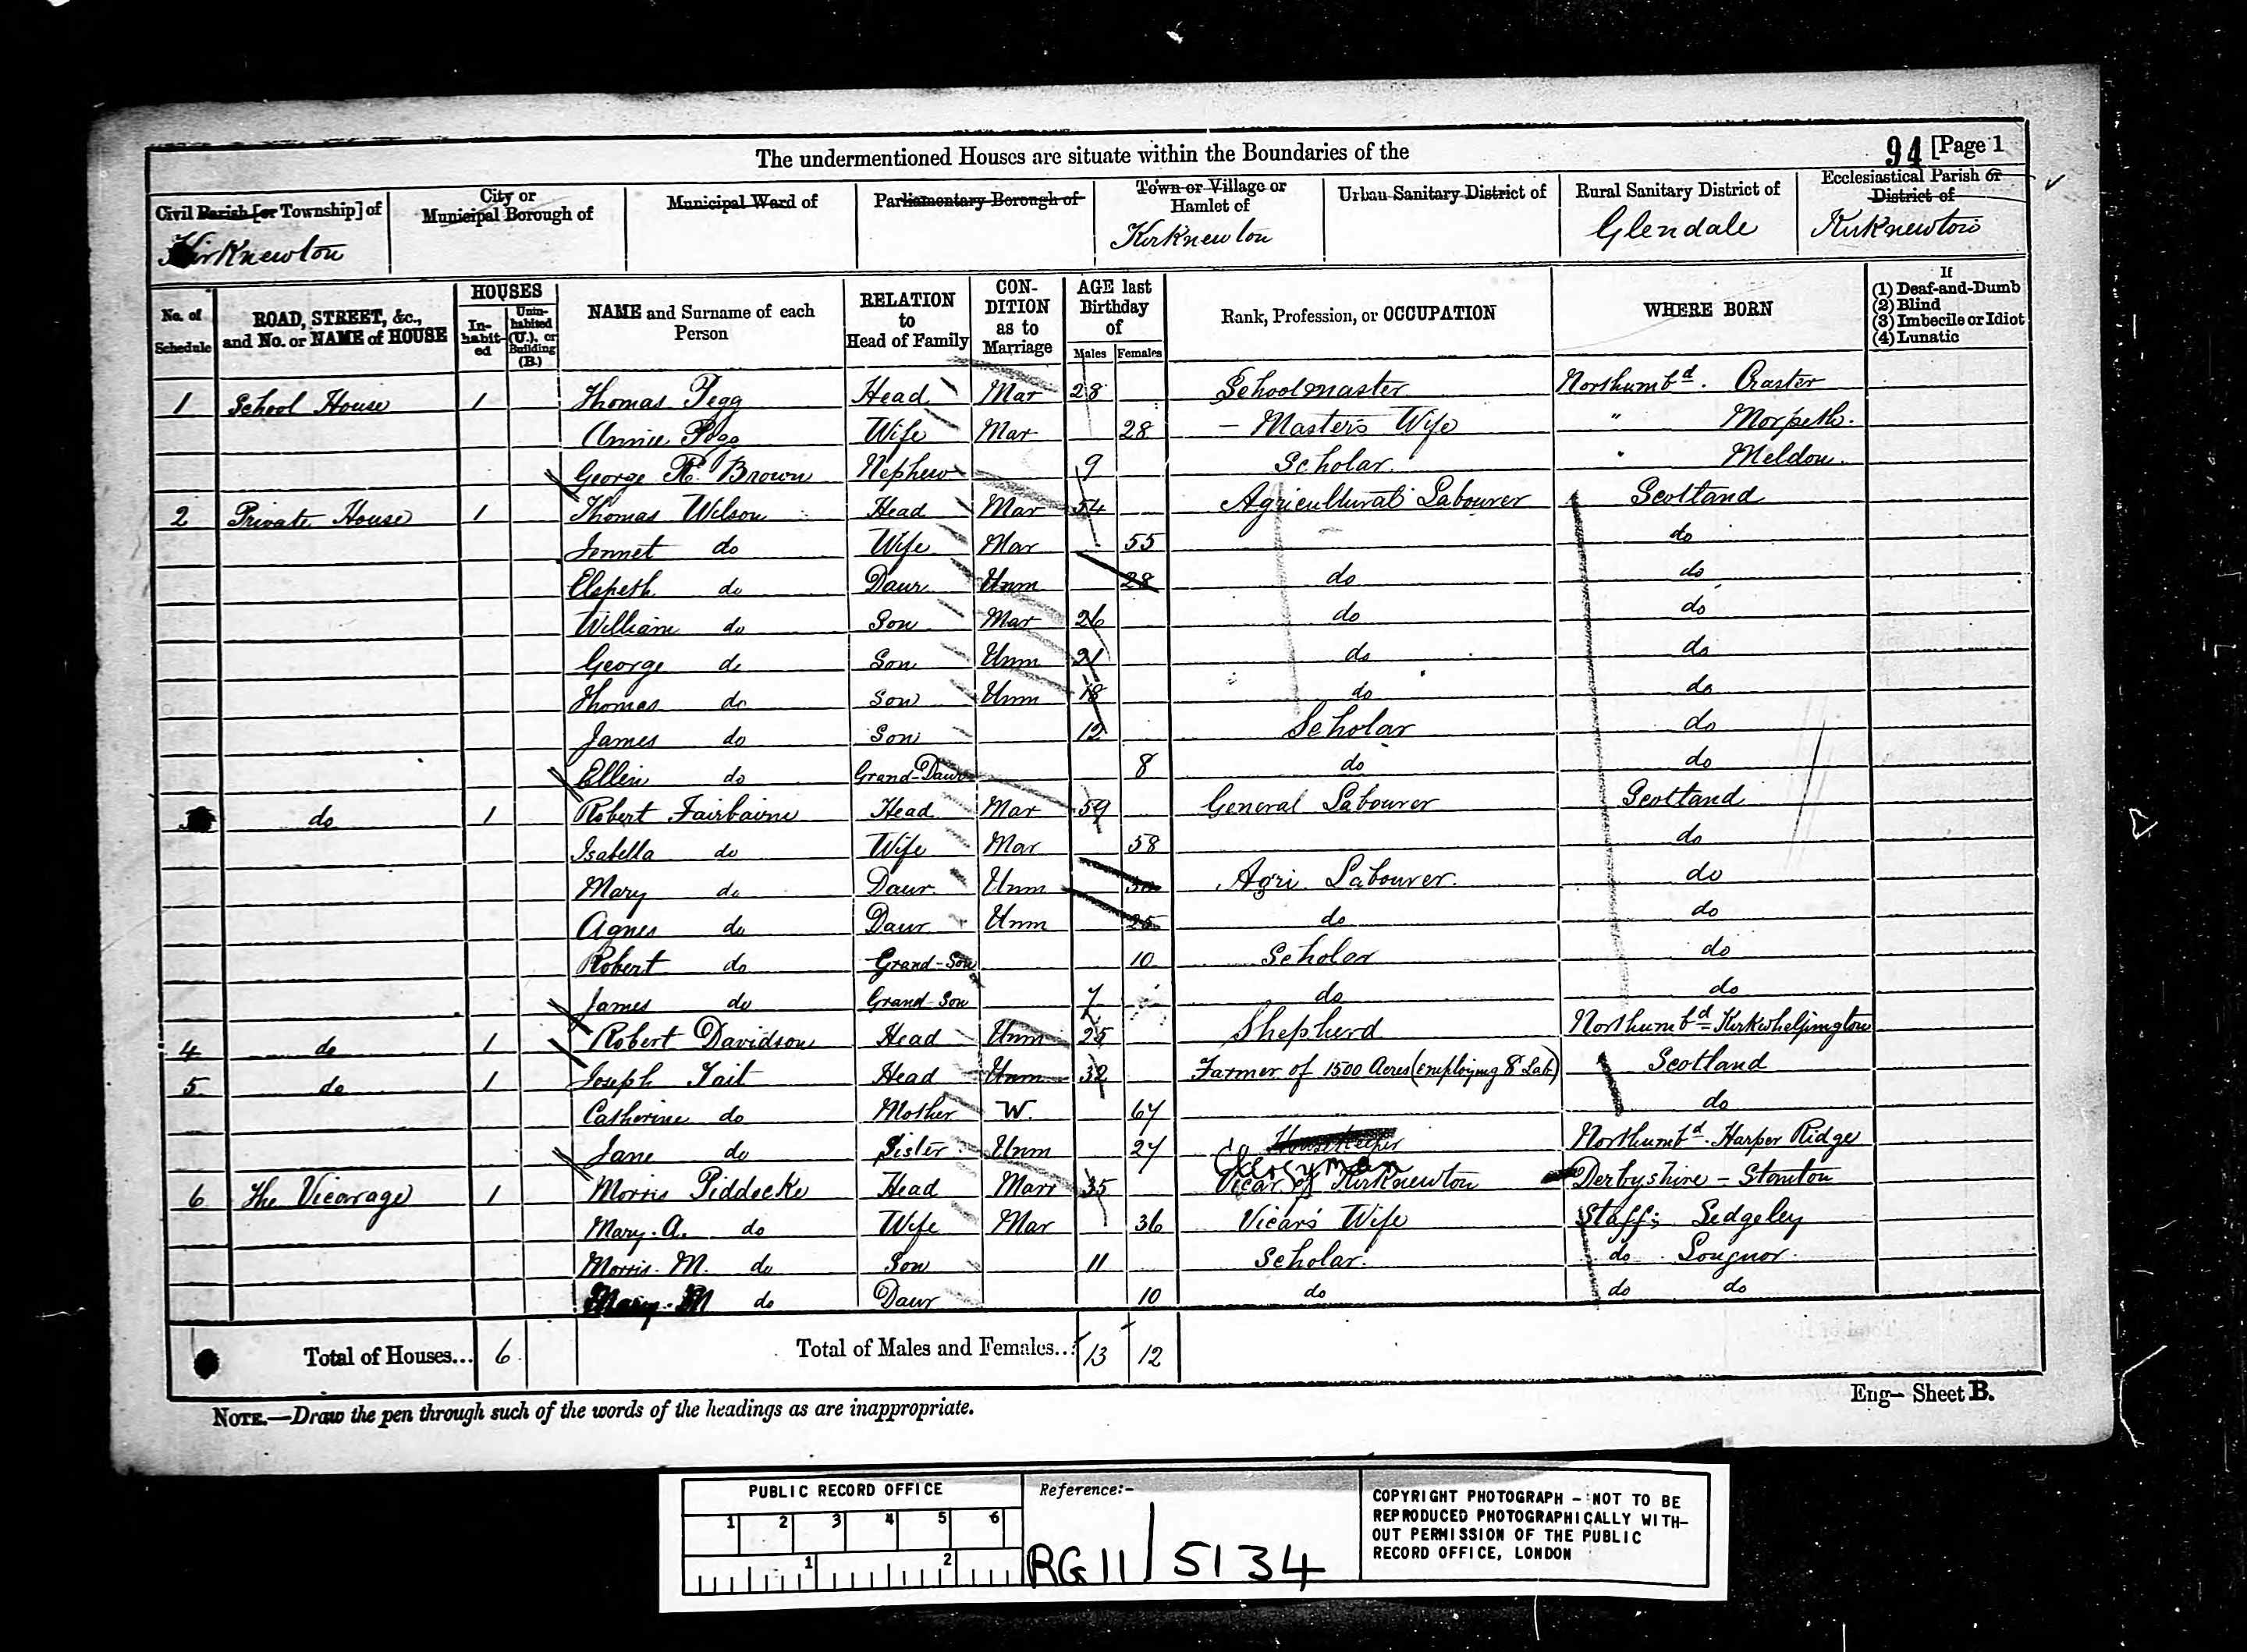 The undermentioned Houses are situate within the Boundaries of the
94 [Page 1
Civil Parish [or Township] of
Kirknewton
City or
Municipal Borough of
Municipal Ward of
Parliamentary Borough of
Town or Village or
Hamlet of
Kirknewton
Urban Sanitary District of
Rural Sanitary District of
Glendale
Ecclesiastical Parish or
District of
Kirknewton
No. of
Schedule
ROAD, STREET, &c.,
and No. or NAME of HOUSE
HOUSES
In-
habit-
ed
Unin-
habited
(U.), or
Building
(B.)
NAME and Surname of each
Person
RELATION
to
Head of Family
CON-
DITION
as to
Marriage
AGE last
Birthday
of
Males Females
Rank, Profession, or OCCUPATION
WHERE BORN
If
(1) Deaf-and-Dumb
(2) Blind
(3) Imbecile or Idiot
(4) Lunatic
1 School House 1 Thomas Pegg Head Mar 28 Schoolmaster Northumbd. Craster
Annie Pegg Wife Mar 28 - Masters Wife " Morpeth.
George R. Brown Nephew 9 Scholar " Meldon.
2 Private House 1 Thomas Wilson Head Mar 54 Agricultural Labourer Scotland
Jennet do Wife Mar 55 do
Elspeth do Daur Unm 28 do do
William do Son Mar 26 do do
George do Son Unm 21 do do
Thomas do Son Unm 18 do do
James do Son 12 Scholar do
Ellen do Grand-Daur 8 do do
do 1 Robert Fairbairn Head Mar 59 General Labourer Scotland
Isabella do Wife Mar 58 do
Mary do Daur Unm Agri. Labourer. do
Agnes do Daur Unm 25 do do
Robert do Grand-Son 10 Scholar do
James do Grand-Son 7 do do
4 do 1 Robert Davidson Head Unm 25 Shepherd Northumbd Kirkwhelpington
5 do 1 Joseph Tait Head Unm 32 Farmer of 1500 Acres (employing 8 Lab) Scotland
Catherine do Mother W. 67 do
Jane do Sister Unm 27 Housekeeper Northumbd. Harper Ridge
Clergyman
6 The Vicarage 1 Morris Piddocke Head Marr 35 Vicar of Kirknewton Derbyshire - Stanton
Mary. A. do Wife Mar 36 Vicars Wife Staffs Sedgeley
Morris. M. do Son 11 Scholar. do Longnor.
Mary. M do Daur 10 do do do
Total of Houses... 6 Total of Males and Females... 13 12
NOTE.—Draw the pen through such of the words of the headings as are inappropriate.
Eng— Sheet B.
PUBLIC RECORD OFFICE
1 2 3 4 5 6
1 2
Reference:-
RG 11 / 5134
COPYRIGHT PHOTOGRAPH - NOT TO BE
REPRODUCED PHOTOGRAPHICALLY WITH-
OUT PERMISSION OF THE PUBLIC
RECORD OFFICE, LONDON